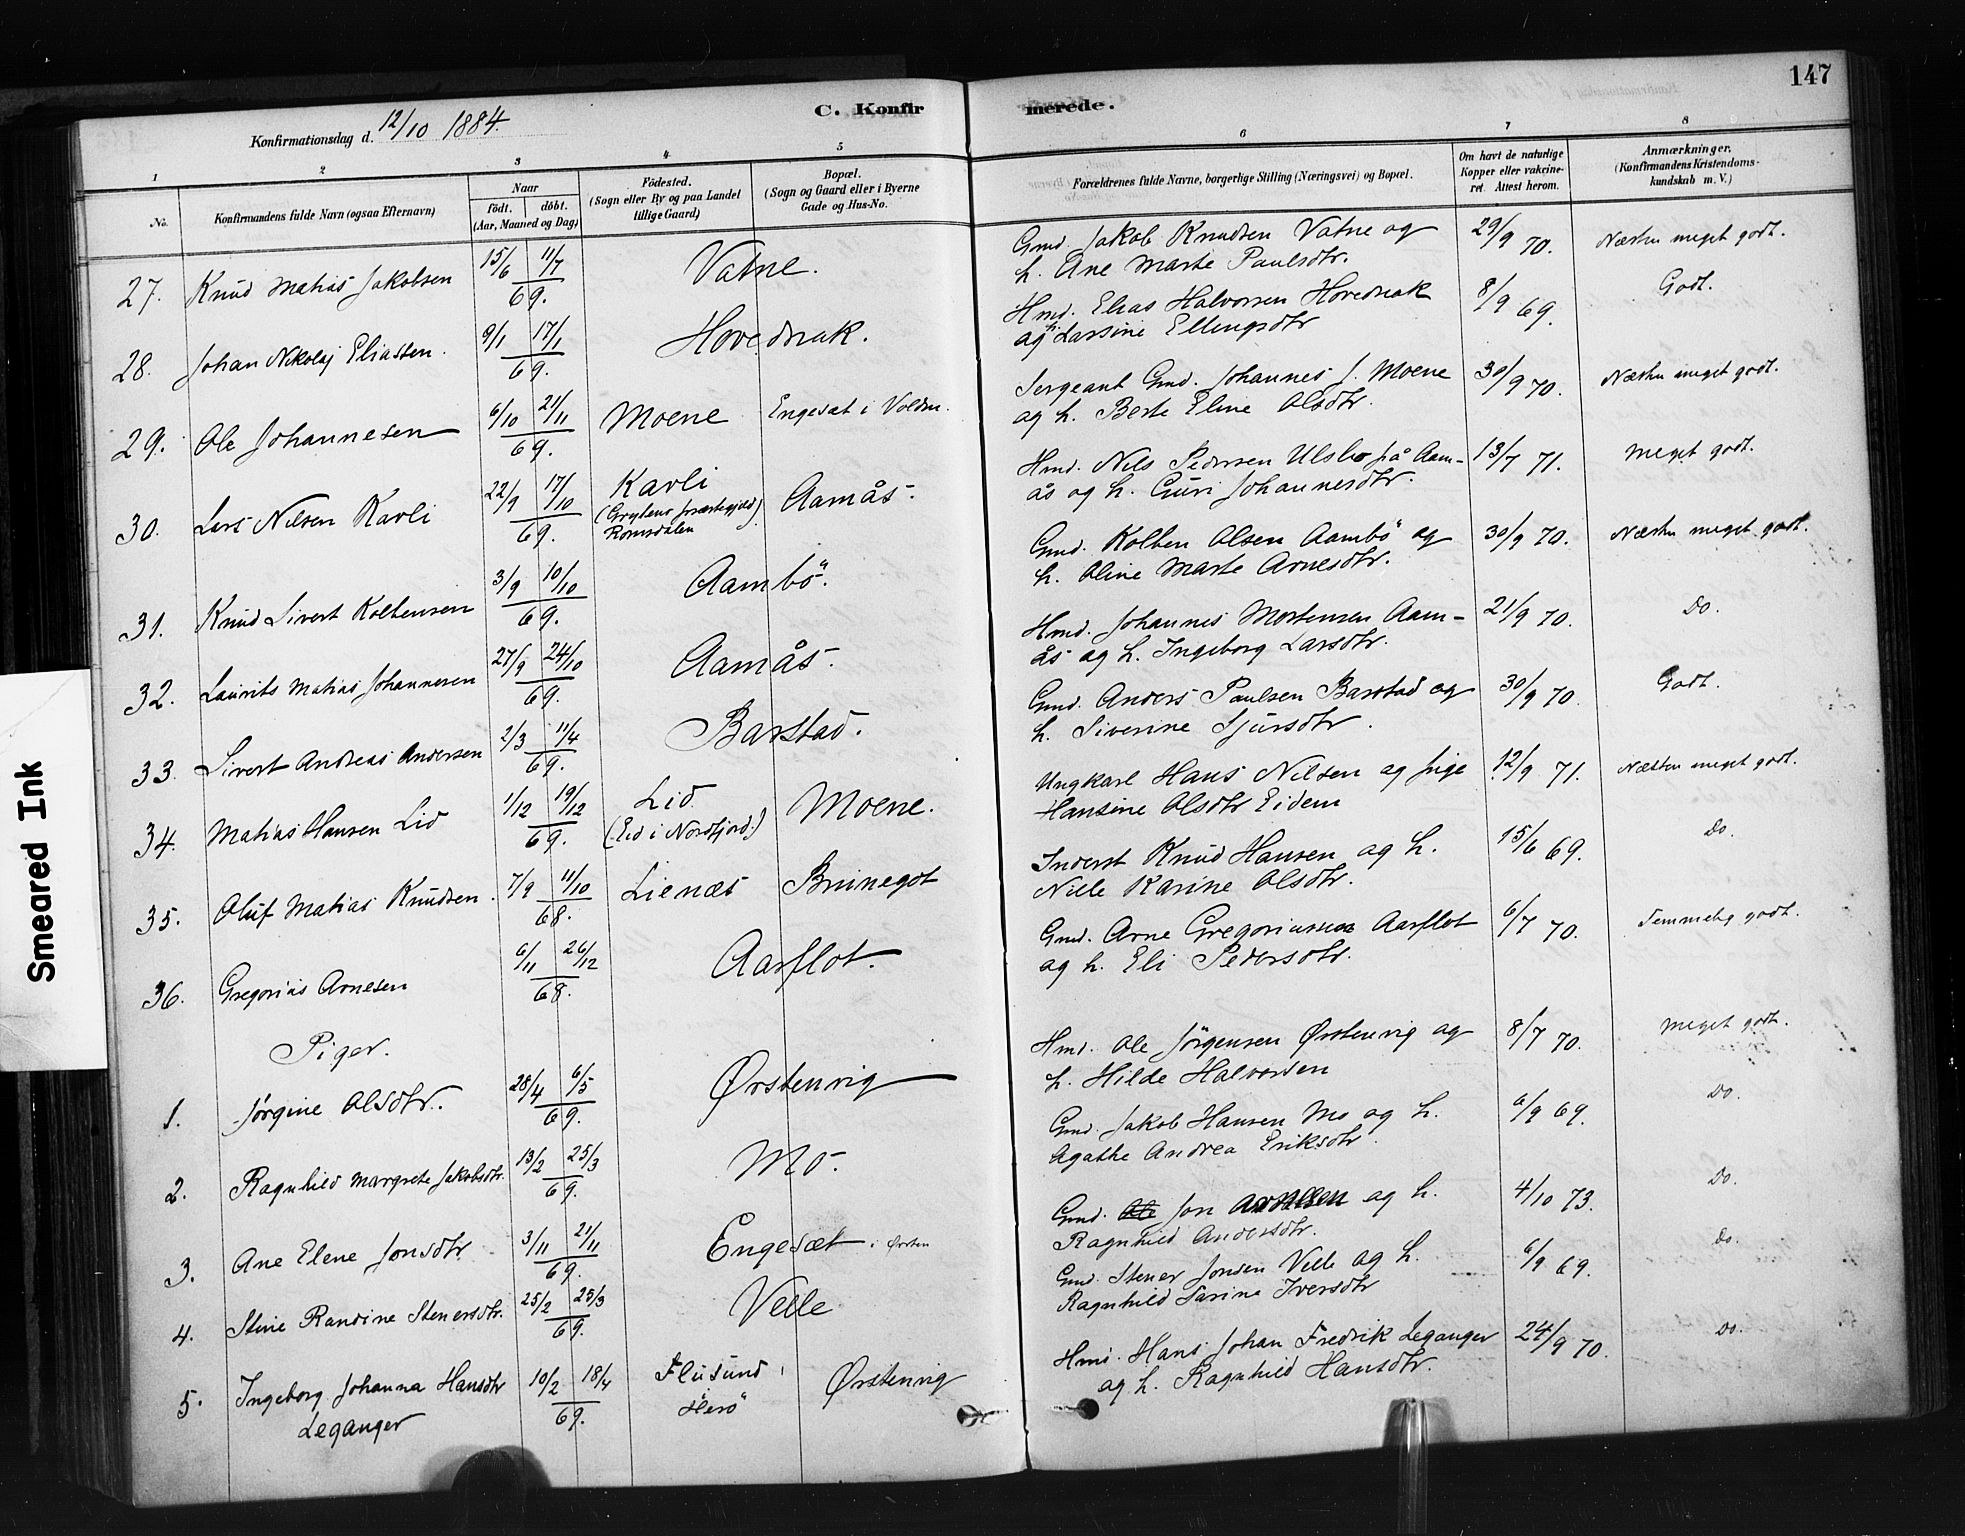 147
C. Konfirmerede.
Konfirmationsdag d. 12/10 1884.
1 2 3 4 5 6 7 8
No. Konfirmandens fulde Navn (ogsaa Efternavn) Naar født. døbt. (Aar, Maaned og Dag) Fødested. (Sogn eller By og paa Landet tillige Gaard) Bopæl. (Sogn og Gaard eller i Byerne Gade og Hus-No. Forældrenes fulde Navne, borgerlige Stilling (Næringsvei) og Bopæl. Om havt de naturlige Kopper eller vakcineret. Attest herom. Anmærkninger. (Konfirmandens Kristendomskundskab m. V.)
27. Knud Matias Jakobsen 15/6 11/7 69. Vatne. Gmd. Jakob Knudsen Vatne og
h. Ane Marte Paulsdtr. 29/9 70. Næsten meget godt.
28. Johan Nikolaj Eliassen. 9/1 17/1 69. Hovednak. Hmd. Elias Halvorsen Hovednak
og h. Larsine Ellingsdtr 8/9 69. Godt.
29. Ole Johannesen 6/10 21/11 69. Moene Engesæt i Volden. Sergeant Gmd. Johannes J. Moene
og h. Berte Eline Olsdtr. 30/9 70. Næsten meget godt.
30. Lars Nilsen Karli 22/9 17/10 69. Karli
(Grytens præstegjeld)
Romsdalen Aamås. Hmd. Nils Pedersen på Aam-
ås og h. Guri Johannesdtr. 13/7 71. Meget godt.
31. Knud Sivert Kolbensen 3/9 10/10 69. Aambö. Gmd. Kolben Olsen Aambö og
h. Oline Marte Arnesdtr. 30/9 70. Næsten meget godt.
32. Laurits Matias Johannesen 27/9 24/10 69. Aamås. Hmd. Johannes Mortensen Aam-
ås og h. Ingeborg Larsdtr. 21/9 70. Do.
33. Sivert Andreas Andersen 2/3 11/4 69. Barstad. Gmd. Anders Paulsen Barstad og
h. Siverine Sjursdtr. 30/9 70. Godt.
34. Matias Hansen Lid 1/12 19/12 69. Lid
(Eid i Nordfjord.) Moene. Ungkarl Hans Nilsen og pige
Hansine Olsdtr Eidem 12/9 71. Næsten meget godt.
35. Oluf Matias Knudsen. 7/9 11/10 68. Lienæs Brunegot Inderst Knud Hansen og h.
Nille Karine Olsdtr. 15/6 69. Do.
36. Gregorius Arnesen 6/11 26/12 68. Aarflot. Gmd. Arne Gregoriussen Aarflot
og h. Eli Pedersdtr. 6/7 70. Temmelig godt.
Piger.
1. Jørgine Olsdtr. 28/4 6/5 69. Ørstenvig Hmd. Ole Jörgensen Ørstenvig og
h. Hilde Halvorsen 8/7 70. Meget godt.
2. Ragnhild Margrete Jakobsdtr. 13/2 25/3 69. Mo. Gmd. Jakob Hansen Mo og h.
Agathe Andrea Eriksdtr. 6/9 69. Do.
3. Ane Elene Jonsdtr 3/11 21/11 69. Engesæt i Ørsten Gmd. Jon og h.
Ragnhild Andersdtr. 4/10 73. Do.
4. Stine Randine Stenersdtr. 25/2 25/3 69. Velle Gmd. Stener Jonsen Velle og h.
Ragnhild Sarine Iversdtr 6/9 69. Do.
5. Ingeborg Johanna Hansdtr
Leganger 10/2 18/4 69. Flusund i
Herö Ørstenvig Hmd. Hans Johan Fredrik Leganger
og h. Ragnhild Hansdtr. 24/9 70. Do.
Smeared Ink